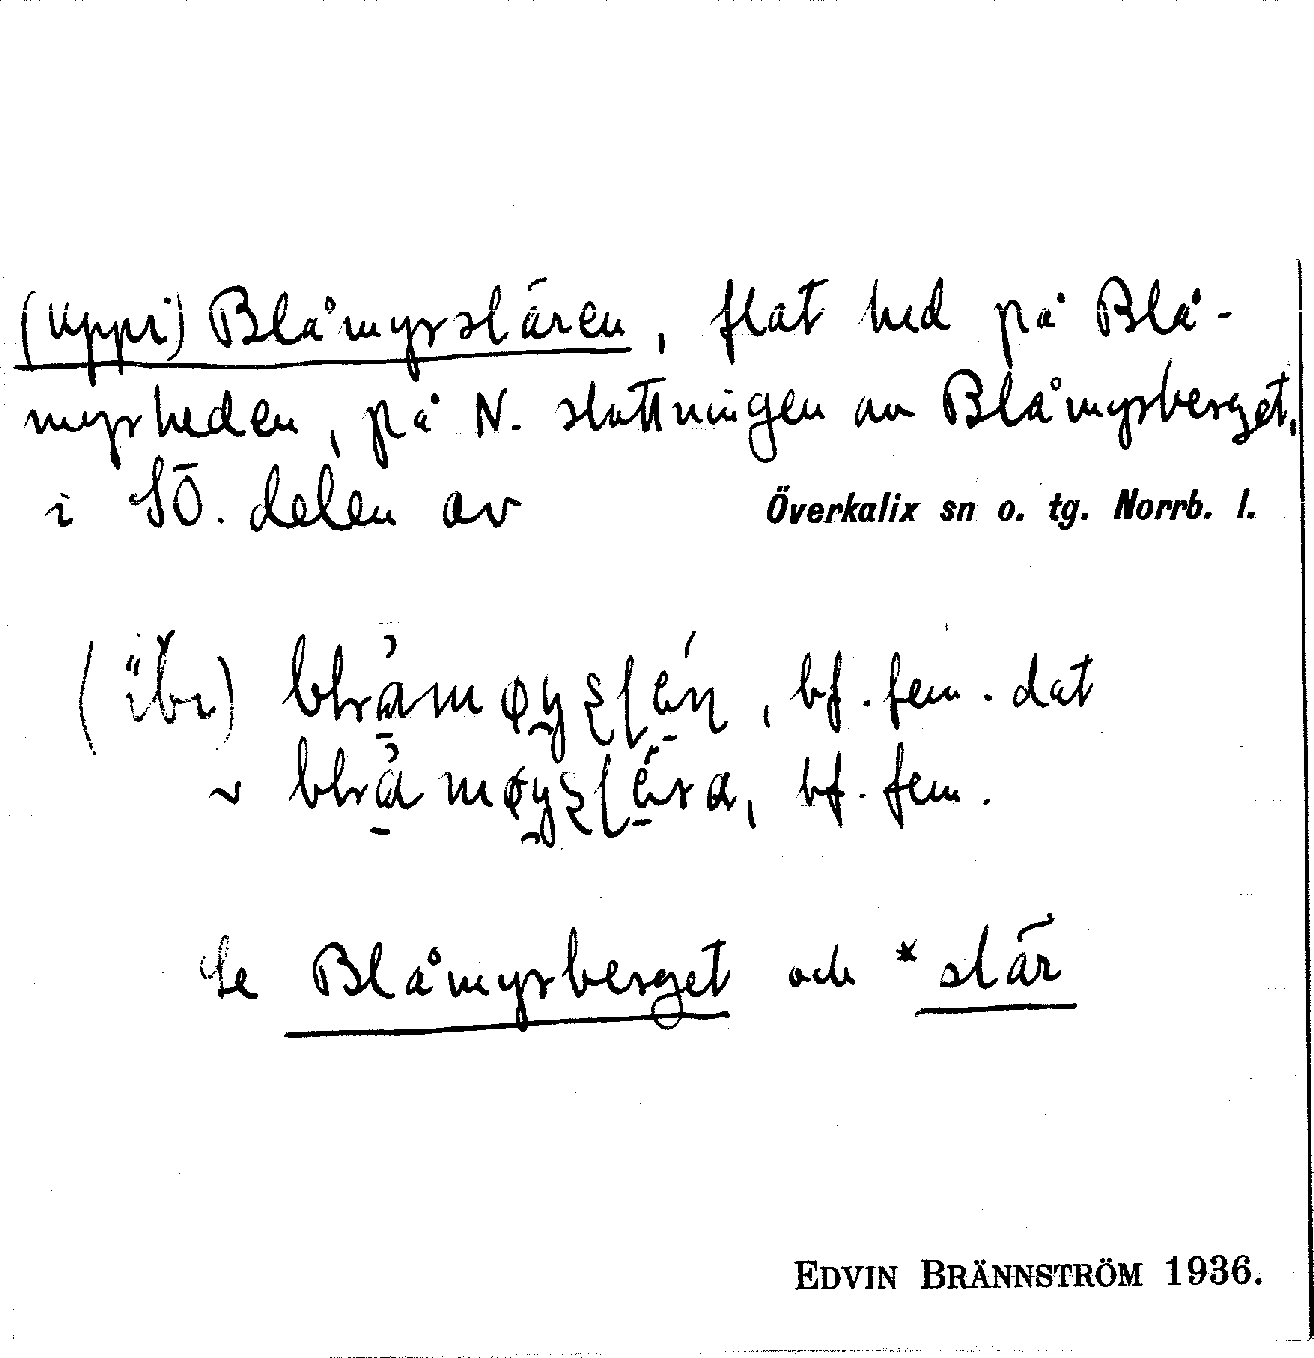 (Uppi) Blåmyrslären, flat hed på Blå-
myrheden, på N. sluttningen av Blåmyrberget,
i SÖ. delen av Överkalix sn o. tg. Norrb. l.
bf. fem. dat
bf. fem.
Se Blåmyrberget och *slär
EDVIN BRÄNNSTRÖM 1936.